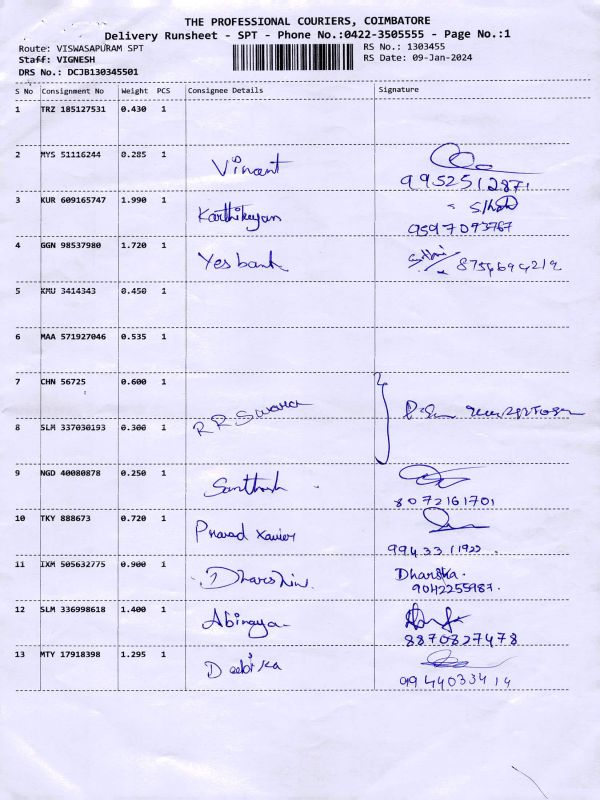 THE PROFESSIONAL COURIERS, COIMBATORE
Delivery Runsheet - SPT - Phone No.:0422-3505555 - Page No.:1
Route: VISWASAPURAM SPT
RS No.: 1303455
Staff: VIGNESH
RS Date: 09-Jan-2024
DRS No.: DCJB130345501
S No Consignment No Weight PCS Consignee Details Signature
1 TRZ 185127531 0.430 1
2 MYS 51116244 0.285 1 Vinant
9952512871
3 KUR 609165747 1.990 1 Karthikeyan
9597093767
4 GGN 98537980 1.720 1 Yes bank 8754694219
5 KMU 3414343 0.450 1
6 MAA 571927046 0.535 1
7 CHN 56725 0.600 1
RR
8 SLM 337030193 0.300 1
9 NGD 40080878 0.250 1 Santhosh
8072161701
10 TKY 888673 0.720 1 Xavier
11 IXM 505632775 0.900 1 Dharshini
9042255987.
12 SLM 336998618 1.400 1 Abinaya
8870827478
13 MTY 17918398 1.295 1
9944033414